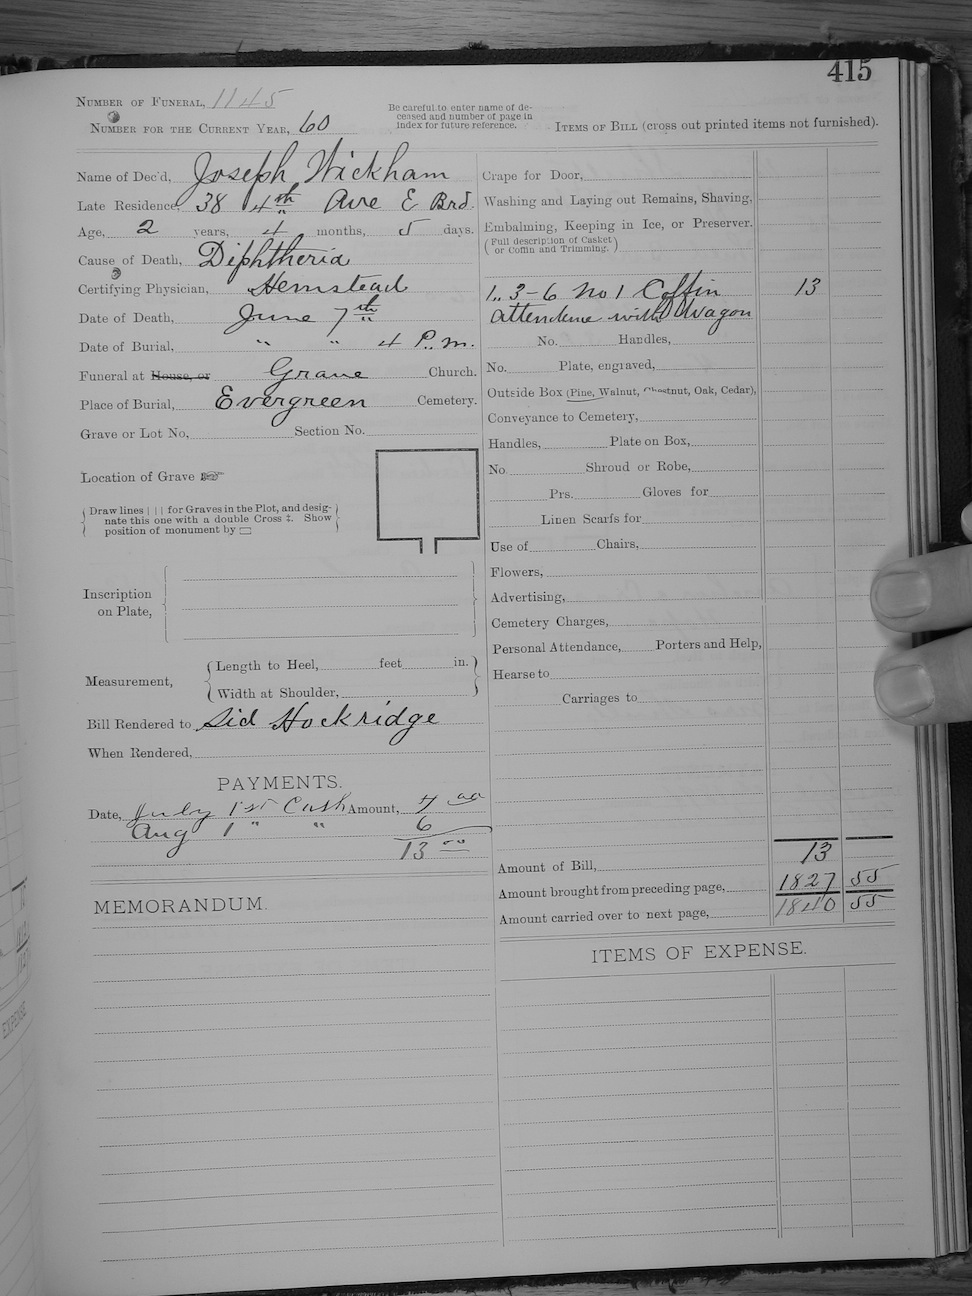 415
NUMBER OF FUNERAL, 1145
NUMBER FOR THE CURRENT YEAR, 60
Be careful to enter name of de-
ceased and number of page in
index for future reference.
ITEMS OF BILL (cross out printed items not furnished).
Name of Dec'd, Joseph Wickham
Late Residence, 38 4th Ave E Brd.
Age, 2 years, 4 months, 5 days.
Cause of Death, Diphtheria
Certifying Physician, Hemstead
Date of Death, June 7th
Date of Burial, " " 4 P.m.
Funeral at House, or Grave Church.
Place of Burial, Evergreen Cemetery.
Grave or Lot No, Section No.
Location of Grave ☞
Draw lines | | | for Graves in the Plot, and desig-
nate this one with a double Cross ‡. Show
position of monument by ▭
Inscription
on Plate,
Measurement,
Length to Heel, feet in.
Width at Shoulder,
Bill Rendered to Sid Hockridge
When Rendered,
PAYMENTS.
Date, July 1st Cash Amount, 7 00
Aug 1 " " 6
13 00
MEMORANDUM.
Crape for Door,
Washing and Laying out Remains, Shaving,
Embalming, Keeping in Ice, or Preserver.
(Full description of Casket
or Coffin and Trimming.)
1. 3-6 No 1 Coffin 13
Attendence with Wagon
No. Handles,
No. Plate, engraved,
Outside Box (Pine, Walnut, Chestnut, Oak, Cedar),
Conveyance to Cemetery,
Handles, Plate on Box,
No. Shroud or Robe,
Prs. Gloves for
Linen Scarfs for
Use of Chairs,
Flowers,
Advertising,
Cemetery Charges,
Personal Attendance, Porters and Help,
Hearse to
Carriages to
Amount of Bill, 13
Amount brought from preceding page, 1827 55
Amount carried over to next page, 1840 55
ITEMS OF EXPENSE.
EXPENSE